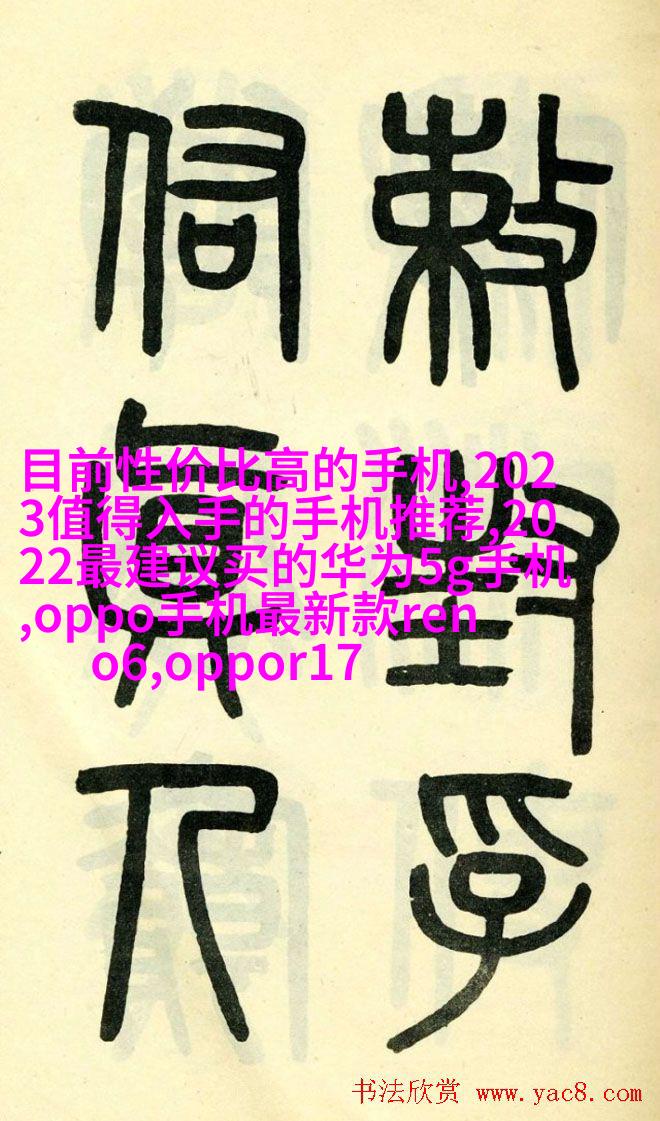 敕封孚
佑眞人
目前性价比高的手机,202
3值得入手的手机推荐,20
22最建议买的华为5g手机
,oppo手机最新款ren
o6,oppor17
书法欣赏 www.yac8.com